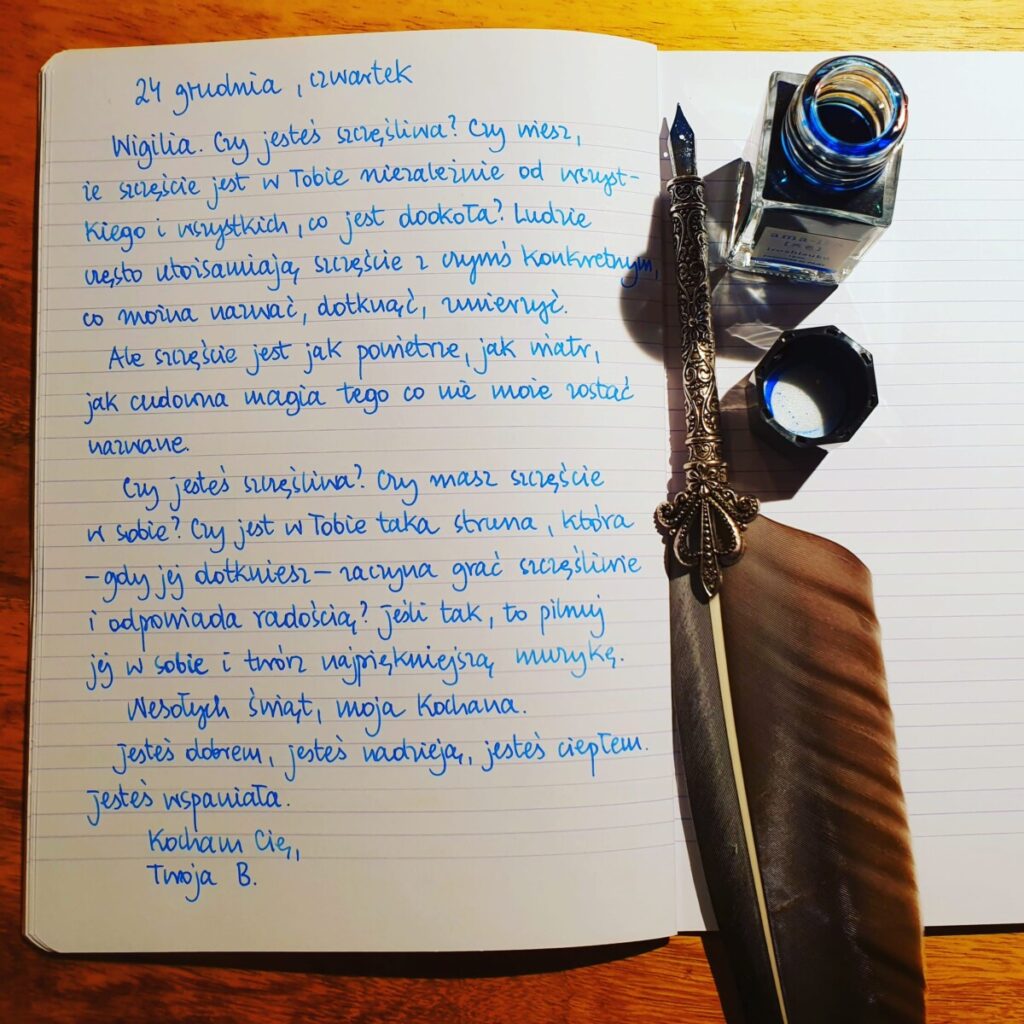 24 grudnia, czwartek
Wigilia. Czy jesteś szczęśliwa? Czy wiesz,
że szczęście jest w Tobie niezależnie od wszyst-
kiego i wszystkich, co jest dookoła? Ludzie
często utożsamiają szczęście z czymś konkretnym,
co można nazwać, dotknąć, zmierzyć.
Ale szczęście jest jak powietrze, jak wiatr,
jak cudowna magia tego co nie może zostać
nazwane.
Czy jesteś szczęśliwa? Czy masz szczęście
w sobie? Czy jest w Tobie taka struna, która
– gdy jej dotkniesz – zaczyna grać szczęśliwie
i odpowiada radością? Jeśli tak, to pilnuj
jej w sobie i twórz najpiękniejszą muzykę.
Wesołych świąt, moja Kochana.
Jesteś dobrem, jesteś nadzieją, jesteś ciepłem.
Jesteś wspaniała.
Kocham Cię,
Twoja B.